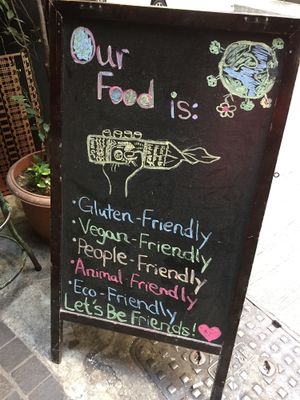 Our
Food is:
• Gluten-Friendly
• Vegan-Friendly
• People-Friendly
• Animal-Friendly
• Eco-Friendly
Let's Be Friends!